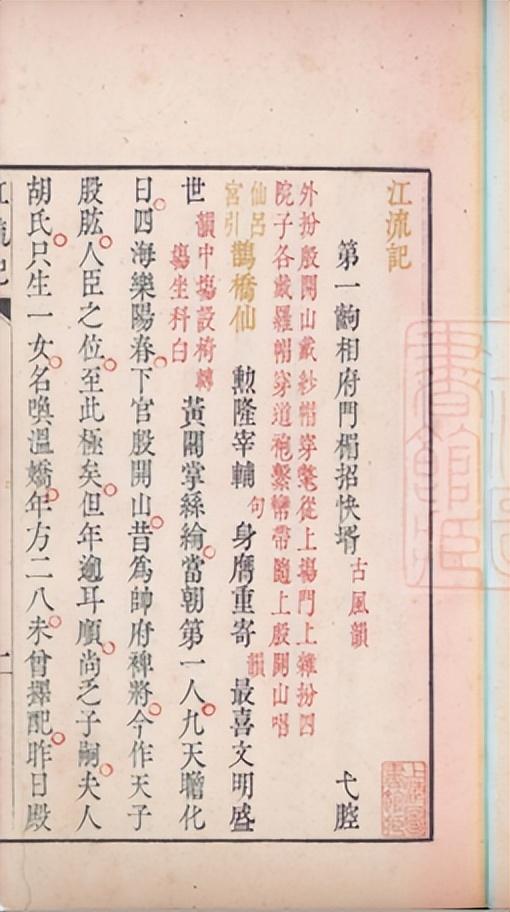 江流記
第一齣相府門楣招快壻 古風韻 弋腔
外扮殷開山戴紗帽穿氅從上場門上雜扮四
院子各戴羅帽穿道袍繫鸞帶隨上殷開山唱
仙呂宮引 鵲橋仙 勲隆宰輔 句 身膺重寄 韻 最喜文明盛
世 韻 中場設椅轉場坐科白 黃閣掌絲綸當朝第一人九天瞻化
日四海樂陽春下官殷開山昔為帥府裨將今作天子
股肱人臣之位至此極矣但年逾耳順尚乏子嗣夫人
胡氏只生一女名喚溫嬌年方二八未曾擇配昨日殿
江流記
一